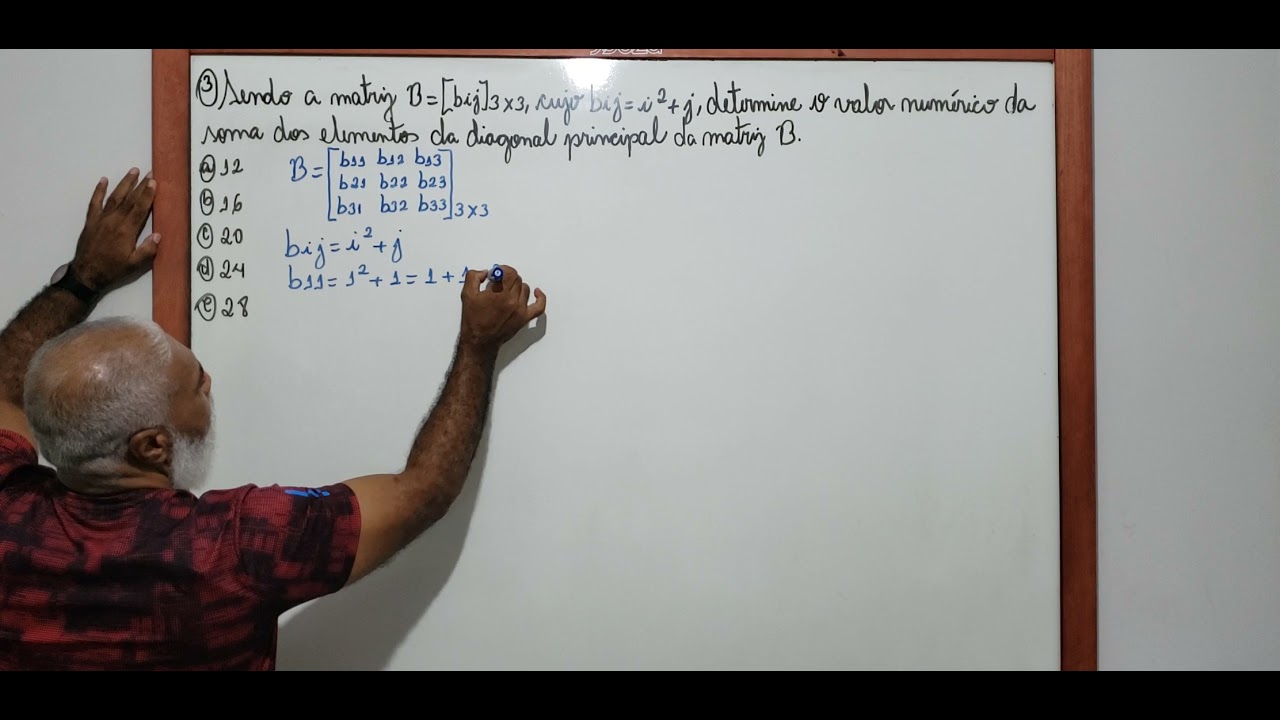 3) Sendo a matriz B=[bij]3x3, cujo bij=i²+j, determine o valor numérico da
soma dos elementos da diagonal principal da matriz B.
a) 12
b) 16
c) 20
d) 24
e) 28
B = [b11 b12 b13
b21 b22 b23
b31 b32 b33]3x3
bij = i² + j
b11 = 1² + 1 = 1 + 1